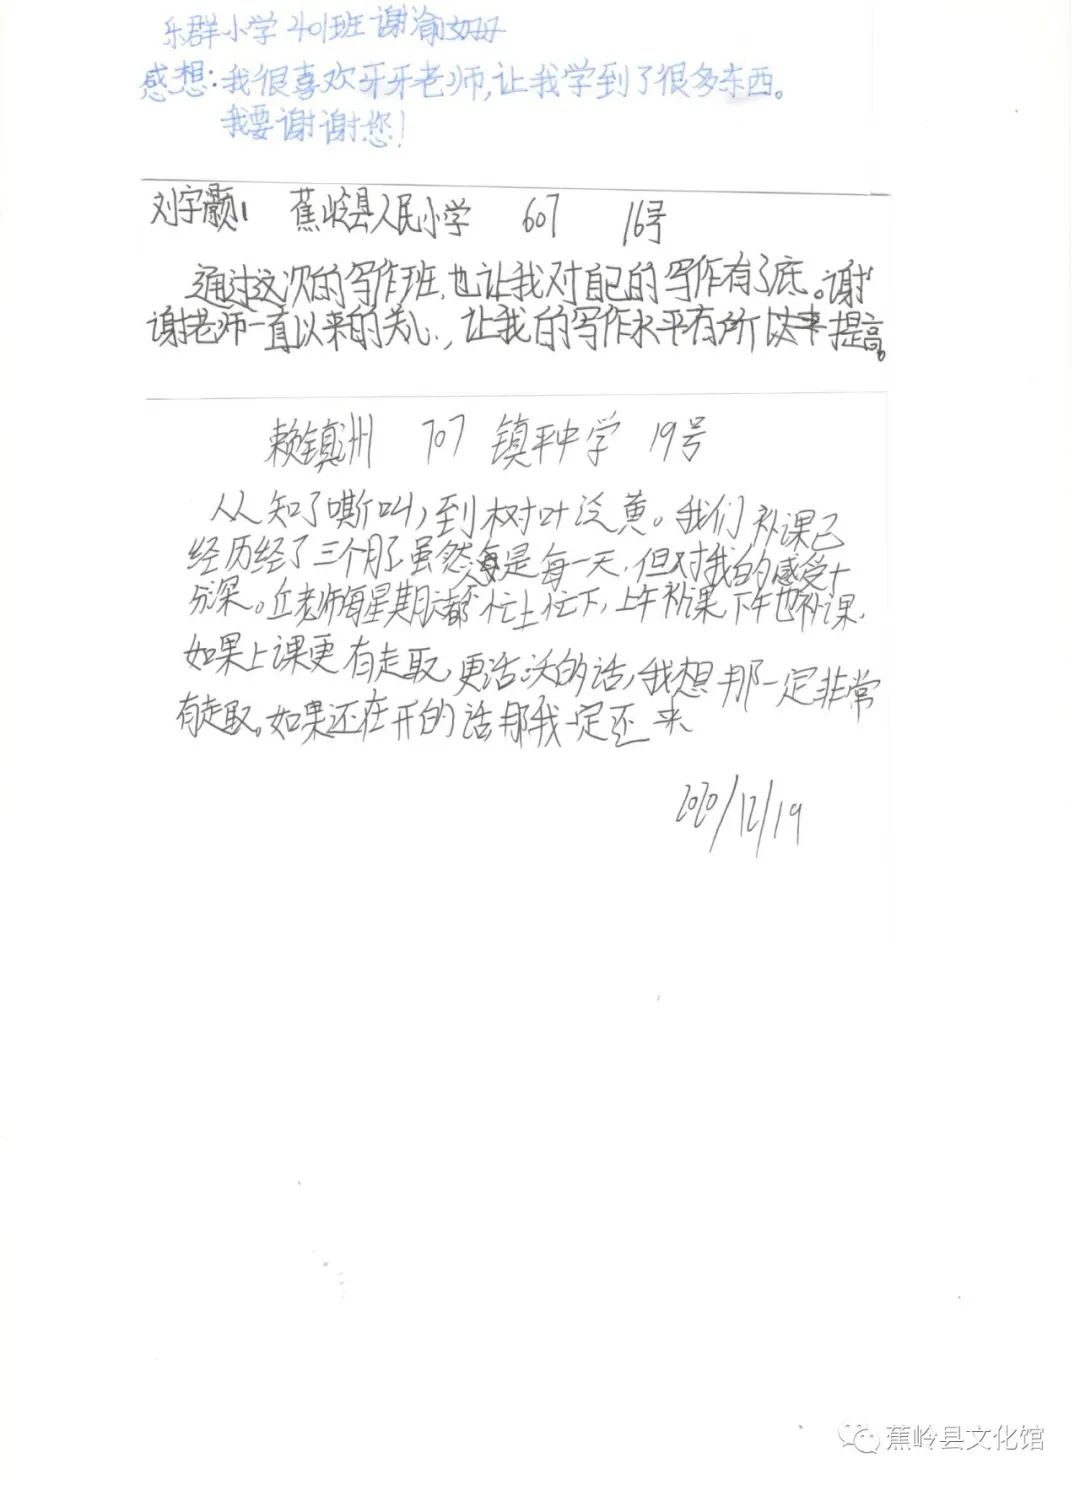 乐群小学401班谢渝姆
感想:我很喜欢牙牙老师,让我学到了很多东西。
我要谢谢您!
刘宇灏 蕉岭县人民小学 607 16号
通过这次的写作班,也让我对自己的写作有了底。谢
谢老师一直以来的关心,让我的写作水平有所提高。
赖镇洲 707 镇平中学 19号
从知了嘶叫,到树叶泛黄。我们补课已
经历经了三个月了虽然不是每一天,但对我的感受十
分深。丘老师每星期六都忙上忙下,上午补课下午也补课,
如果上课更有走取,更活沃的话,我想那一定非常
有走取。如果还在开的话那我一定还来
2020/12/19
蕉岭县文化馆